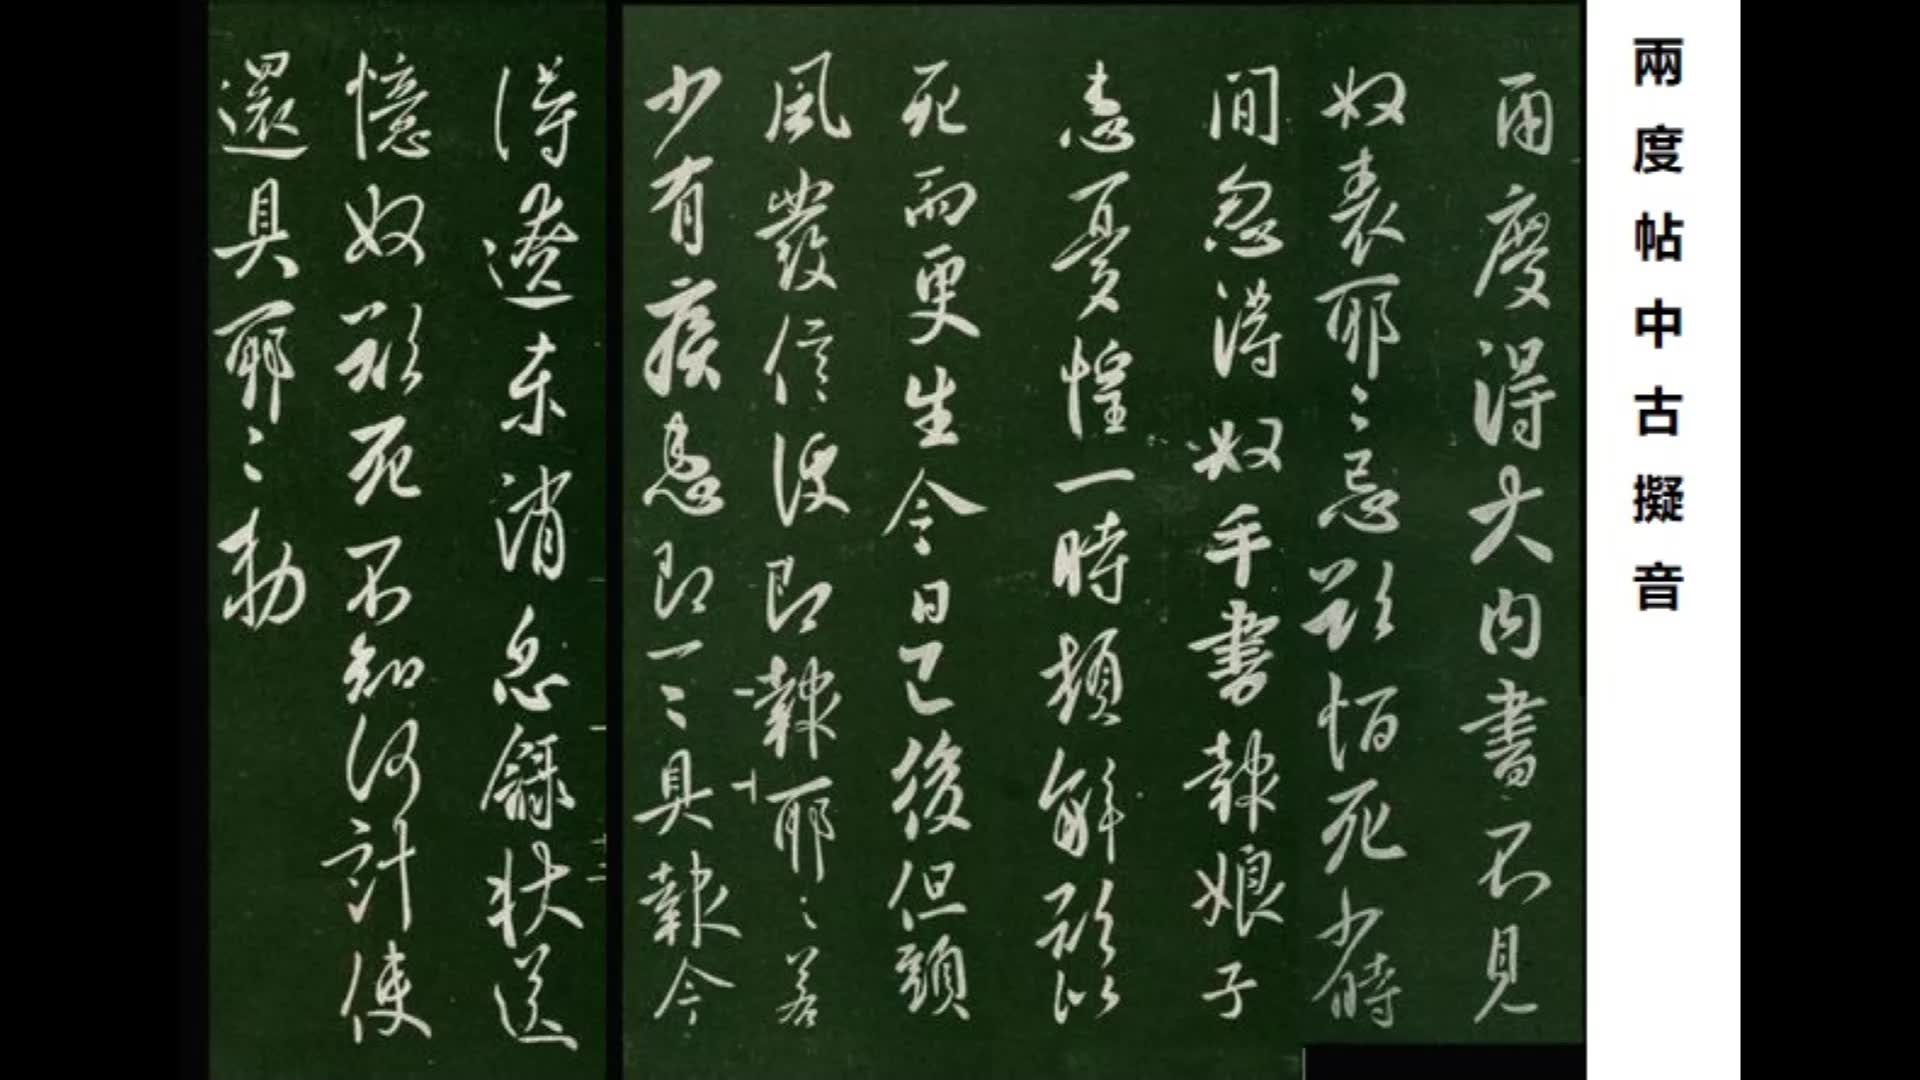 兩度帖中古擬音
兩度得大內書不見
奴表耶〻忌欲恒死少時
間忽得奴手書報娘子
患憂惶一時頓解欲似
死而更生今日已後但頭
風發信便即報耶〻若
少有疾患即一〻具報今
得遼東消息錄狀送
憶奴欲死不知何計使
還具耶〻勅